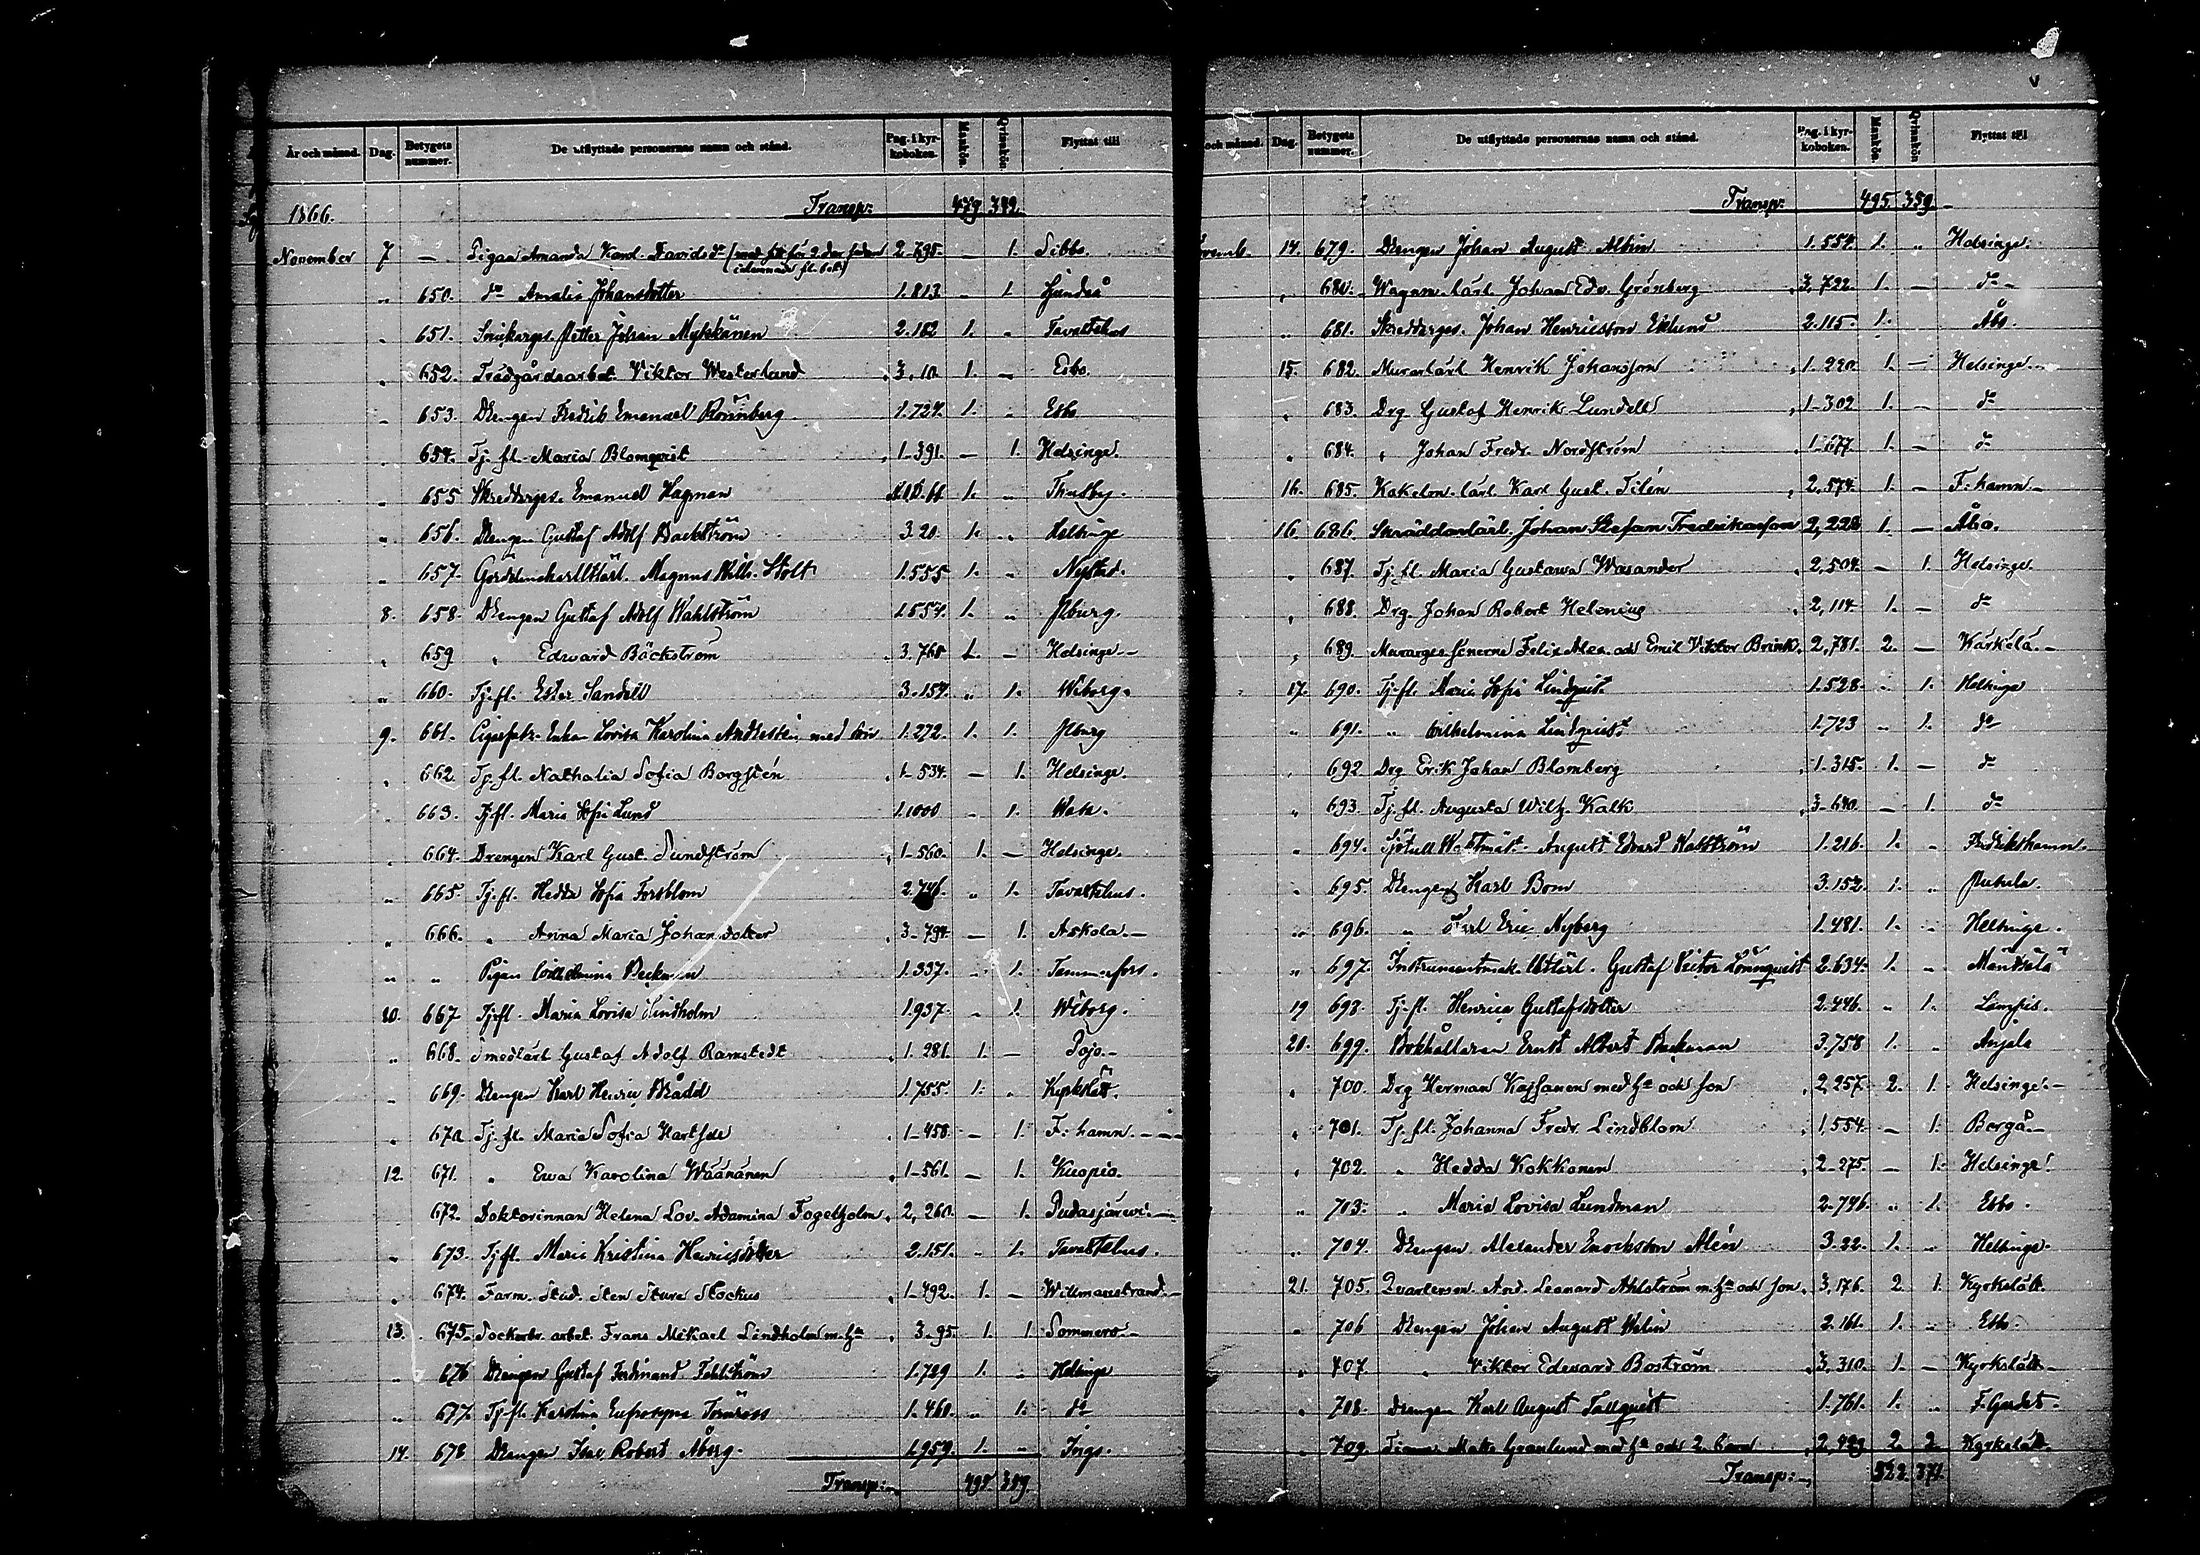 År och månad. Dag. Betygets nummer. De utflyttade personernas namn och stånd. Pag. i kyrkoboken. Mankön. Qvinkön. Flyttat till
1866. Transp: 479 342
November 7 — Pigan Amanda Karol. Davidsdr 2-695 — 1. Sibbo.
" 650. dr Amalia Johansdotter 1.813 – 1. Sjundeå
" 651. Snickarges. Petter Johan Mykkänen 2.152 1. " Tavastehus
" 652. Trädgårdsarbet. Viktor Westerlund 3, 10. 1. — Esbo.
" 653. Drengen Fredrik Emanuel Rönnberg 1.724. 1. " Esbo
" 654. Tj. fl. Maria Blomqvist 1-391. — 1. Helsinge.
" 655 Skreddarges. Emanuel Hagman 1. " Thusby.
" 656. Drengen Gustaf Adolf Backström 3.20. 1. " Helsinge
" 657. Magnus Wilh. Stolt 1.555 1. " Nystad.
8. 658. Drengen Gustaf Adolf Wahlström 1.554. 1. " Pburg.
" 659 " Edward Bäckström 3.765 1. — Helsinge —
" 660. Tj.fl. Ester Sandell 3.154. " 1. Wiborg.
9. 661. Enkan Lovisa Karolina med son 1.272. 1. 1. Pburg
" 662 Tj. fl. Nathalia Sofia Borgstén 1-534. — 1. Helsinge.
" 663. Tj.fl. Maria Sofia Lund 1.1000 " 1. Wasa.
" 664. Drengen Karl Gust. Sundström 1-560. 1. — Helsinge.
" 665. Tj. fl. Hedda Sofia Forsblom 2.746. " 1. Tavastehus.
" 666. " Anna Maria Johansdotter 3-794. — 1. Askola. —
" " Pigan Wilhelmina Beckman 1.337. " 1. Tammerfors.
10. 667 Tj.fl. Maria Lovisa Lindholm 1.937. " 1. Wiborg.
" 668. Smedlärl. Gustaf Adolf Ramstedt 1. 281. 1. — Pojo. –
" 669. Drengen Karl Henric Brådd 1.755. 1. " Kyrkslätt.
" 670. Tj. fl. Maria Sofia 1-458. — 1. F: hamn. —
12. 671. " Ewa Karolina Wäänänen 1-561. — 1. Kuopio.
" 672. Doktorinnan Helena Lov. Adamina Fogelholm 2, 260. — 1. Pudasjärwi. —
" 673. Tj.fl. Maria Kristina Henricsdotter 2.151. " 1. Tavastehus.
" 674. Farm. Stud. Sten Sture Stockus 1-492. 1. — Willmanstrand. –
13. 675. Sockerbr. arbet. Frans Mikael Lindholm m. hu 3-95. 1. 1 Sommero. –
" 676 Drengen Gustaf Ferdinand Fehlström 1.729 1. " Helsinge
" 677. Tj.fl. Karolina Eufrosyne 1.460. " 1. do
14. 678 Drengen Robert Åberg. 1.954. 1. " Ingo.
Transp: 495. 359.
och månad. Dag. Betygets nummer. De utflyttade personernas namn och stånd. Pag. i kyrkoboken. Mankön. Qvinkön Flyttat till
Transp: 495. 359. –
Novemb. 14. 679. Drengen Johan August Albin 1.554. 1. " Helsinge.
" 680. Wagnm. lärl. Johan Edv. Grönberg 3,722. 1. — do –
" 681. Skreddarges. Johan Henricsson Eklund 2.115. 1. Åbo.
15. 682. Murarlärl. Henrik Johansson 1.220. 1. — Helsinge. –
" 683. Drg Gustaf Henrik Lundell 1-302 1. — do
" 684. " Johan Fredr. Nordström 1-677. 1. — do
16. 685. Kakelm. lärl. Karl Gust. Tilén 2,574. 1. — F: hamn –
16 686. Skräddarlärl. Johan Stefam Fredriksson 2,228 1. — Åbo.
" 687. Tj. fl. Maria Gustawa Wasander 2,504. — 1. Helsinge.
" 688. Drg. Johan Robert Helenius 2,114. 1. — do
" 689. Murarges. sönerne Felix Alex. och Emil Viktor Brink. 2,781. 2. — Kärkelä. –
17. 690. Tj.fl. Maria Sofia Lindqvist. 1.528. " 1. Helsinge
" 691. " Wilhelmina Lindqvist. 1.723 " 1. do
" 692 Drg Erik Johan Blomberg 1.315. 1. — do
" 693. Tj. fl. Augusta Wilh. Kalk 3-640. — 1. do
" 694. August Edvard Wahlström 1.216. 1. " Fredrikshamn.
" 695. Drengen Karl Bom 3.152. 1. "
" 696. " Karl Eric Nyberg 1.481. 1. " Helsinge.
" 697. Instrumentmak. Utlärl. Gustaf Victor Lönnqvist 2.634. 1. " Mäntsälä
19 698. Tj.fl. Henrica Gustafsdotter 2.446. " 1. Lampis.
20. 699. Bokhållaren Ernst Albert Backman 3.758 1. " Anjala
" 700. Drg Herman Kajsanen med hu och son 2,257. 2. 1. Helsinge. –
" 701. Tj. fl. Johanna Fredr. Lindblom 1,554. — 1. Borgå. –
" 702. " Hedda Kokkonen 2-275. — 1. Helsinge.
" 703. " Maria Lovisa Lundman 2.746. " 1. Esbo.
" 704. Drengen Alexander Enochsson Alén 3.22. 1. " Helsinge.
21. 705. And. Leonard Ahlström m. hu och son 3,176. 2. 1. Kyrkslätt.
" 706 Drengen Johan August Welin 2.161. 1. " Esbo.
" 707 " Viktor Edward Boström 3,310. 1. — Kyrkslätt –
" 708. Drengen Karl August Tallqvist 1.761. 1. "
" 709 Matts Granlund med hu och 2 barn 2,429 2. 2. Kyrkslätt.
Transp: 522. 371.